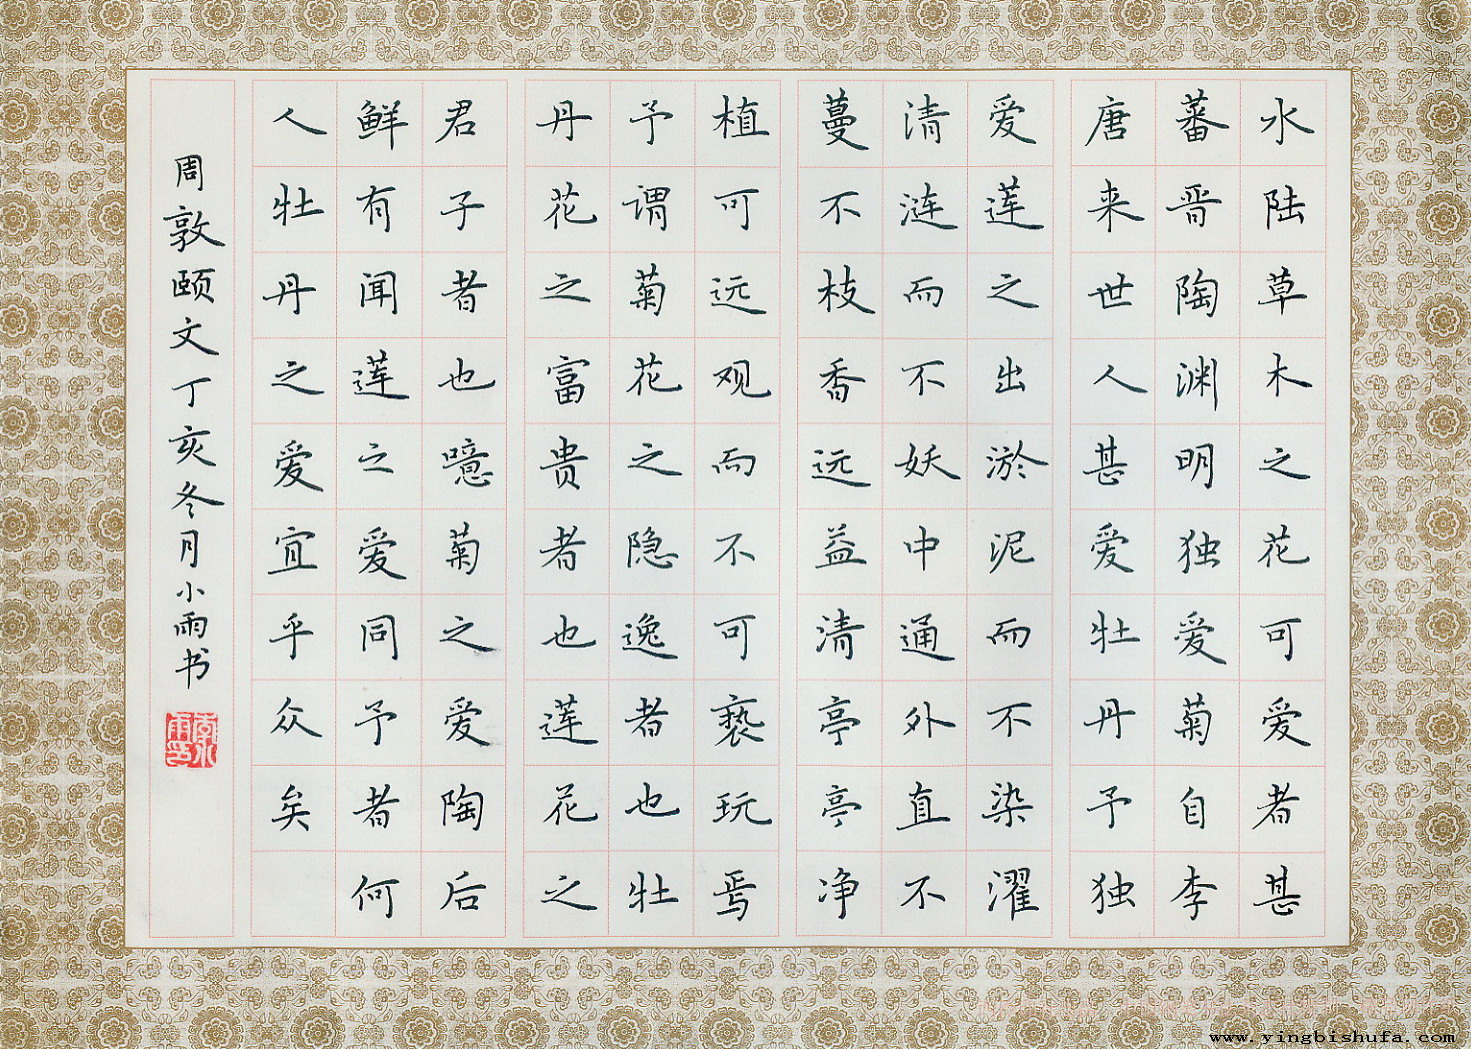 水陆草木之花可爱者甚
蕃晋陶渊明独爱菊自李
唐来世人甚爱牡丹予独
爱莲之出淤泥而不染濯
清涟而不妖中通外直不
蔓不枝香远益清亭亭净
植可远观而不可亵玩焉
予谓菊花之隐逸者也牡
丹花之富贵者也莲花之
君子者也噫菊之爱陶后
鲜有闻莲之爱同予者何
人牡丹之爱宜乎众矣
周敦颐文丁亥冬月小雨书
www.yingbishufa.com